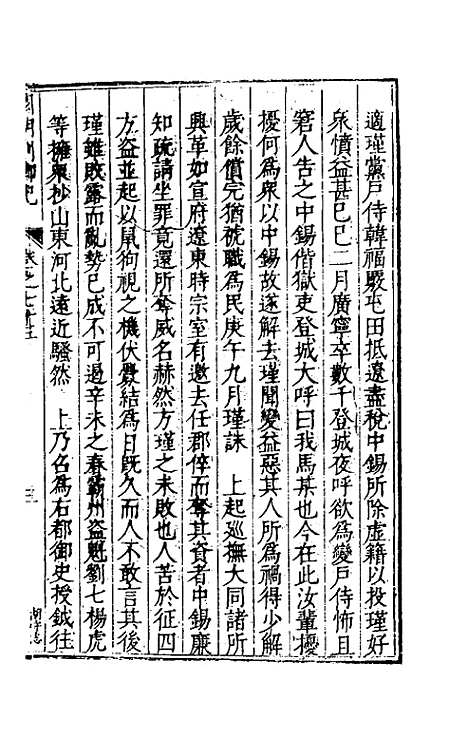 適瑾黨戶侍韓福覈屯田抵遼盡稅中錫所除虛籍以投瑾好
衆憤益甚己巳二月廣寧卒數千登城夜呼欲爲變戶侍怖且
窘人告之中錫偕獄吏登城大呼曰我馬某也今在此汝輩擾
擾何爲衆以中錫故遂解去瑾聞變益惡其人所爲禍得少解
歲餘償完猶褫職爲民庚午九月瑾誅 上起巡撫大同諸所
興革如宣府遼東時宗室有邀去任郡倅而奪其資者中錫廉
知疏請坐罪竟還所奪威名赫然方瑾之未敗也人苦於征四
方盜並起以鼠狗視之機伏釁結爲日旣久而人不敢言其後
瑾雖敗露而亂勢已成不可遏辛未之春霸州盜魁劉七楊虎
等擁衆抄山東河北遠近騷然 上乃召爲右都御史授鉞往
三